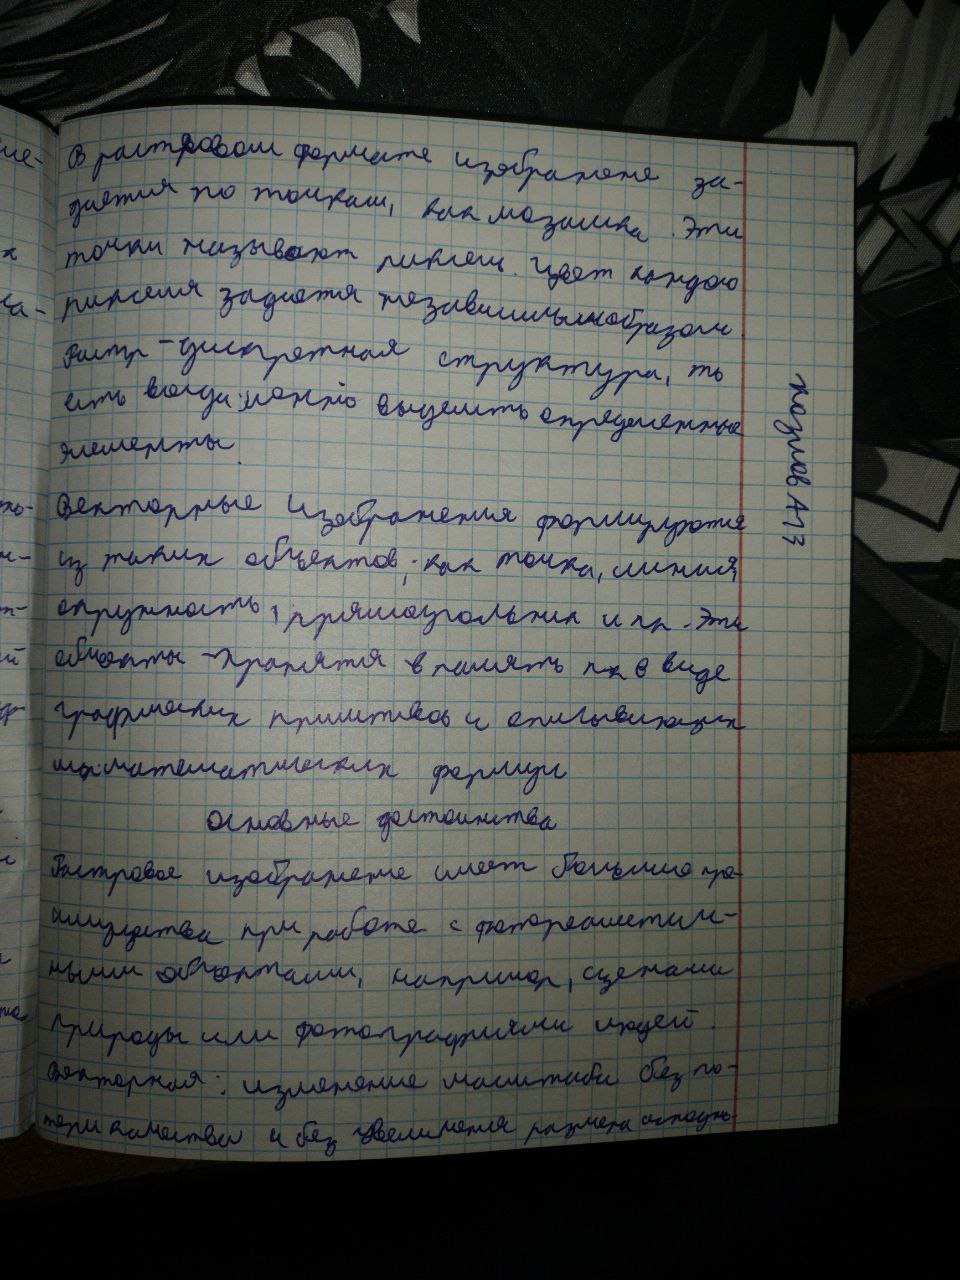 В растровом формате изображене за-
дается по точкам, как мозаика. Эти
точки называют пиксел. Цвет каждого
пикселя задается независимым образом.
Растр - дискретная структура, то
есть всегда можно выделить определенные
элементы.
Векторные изображения формируются
из таких объектов, как точка, линия,
окружность, прямоугольник и пр. Эти
объекты хранятся в память пк в виде
графических примитивов и описывающих
их математических формул
основные достоинства
Растровое изображение имеет большие
при работе с фотореалистич-
ными объектами, например, сценами
природы или фотографиями людей.
Векторная: изменение масштаба без по-
тери качества и без увеличения размера
Козлов А13